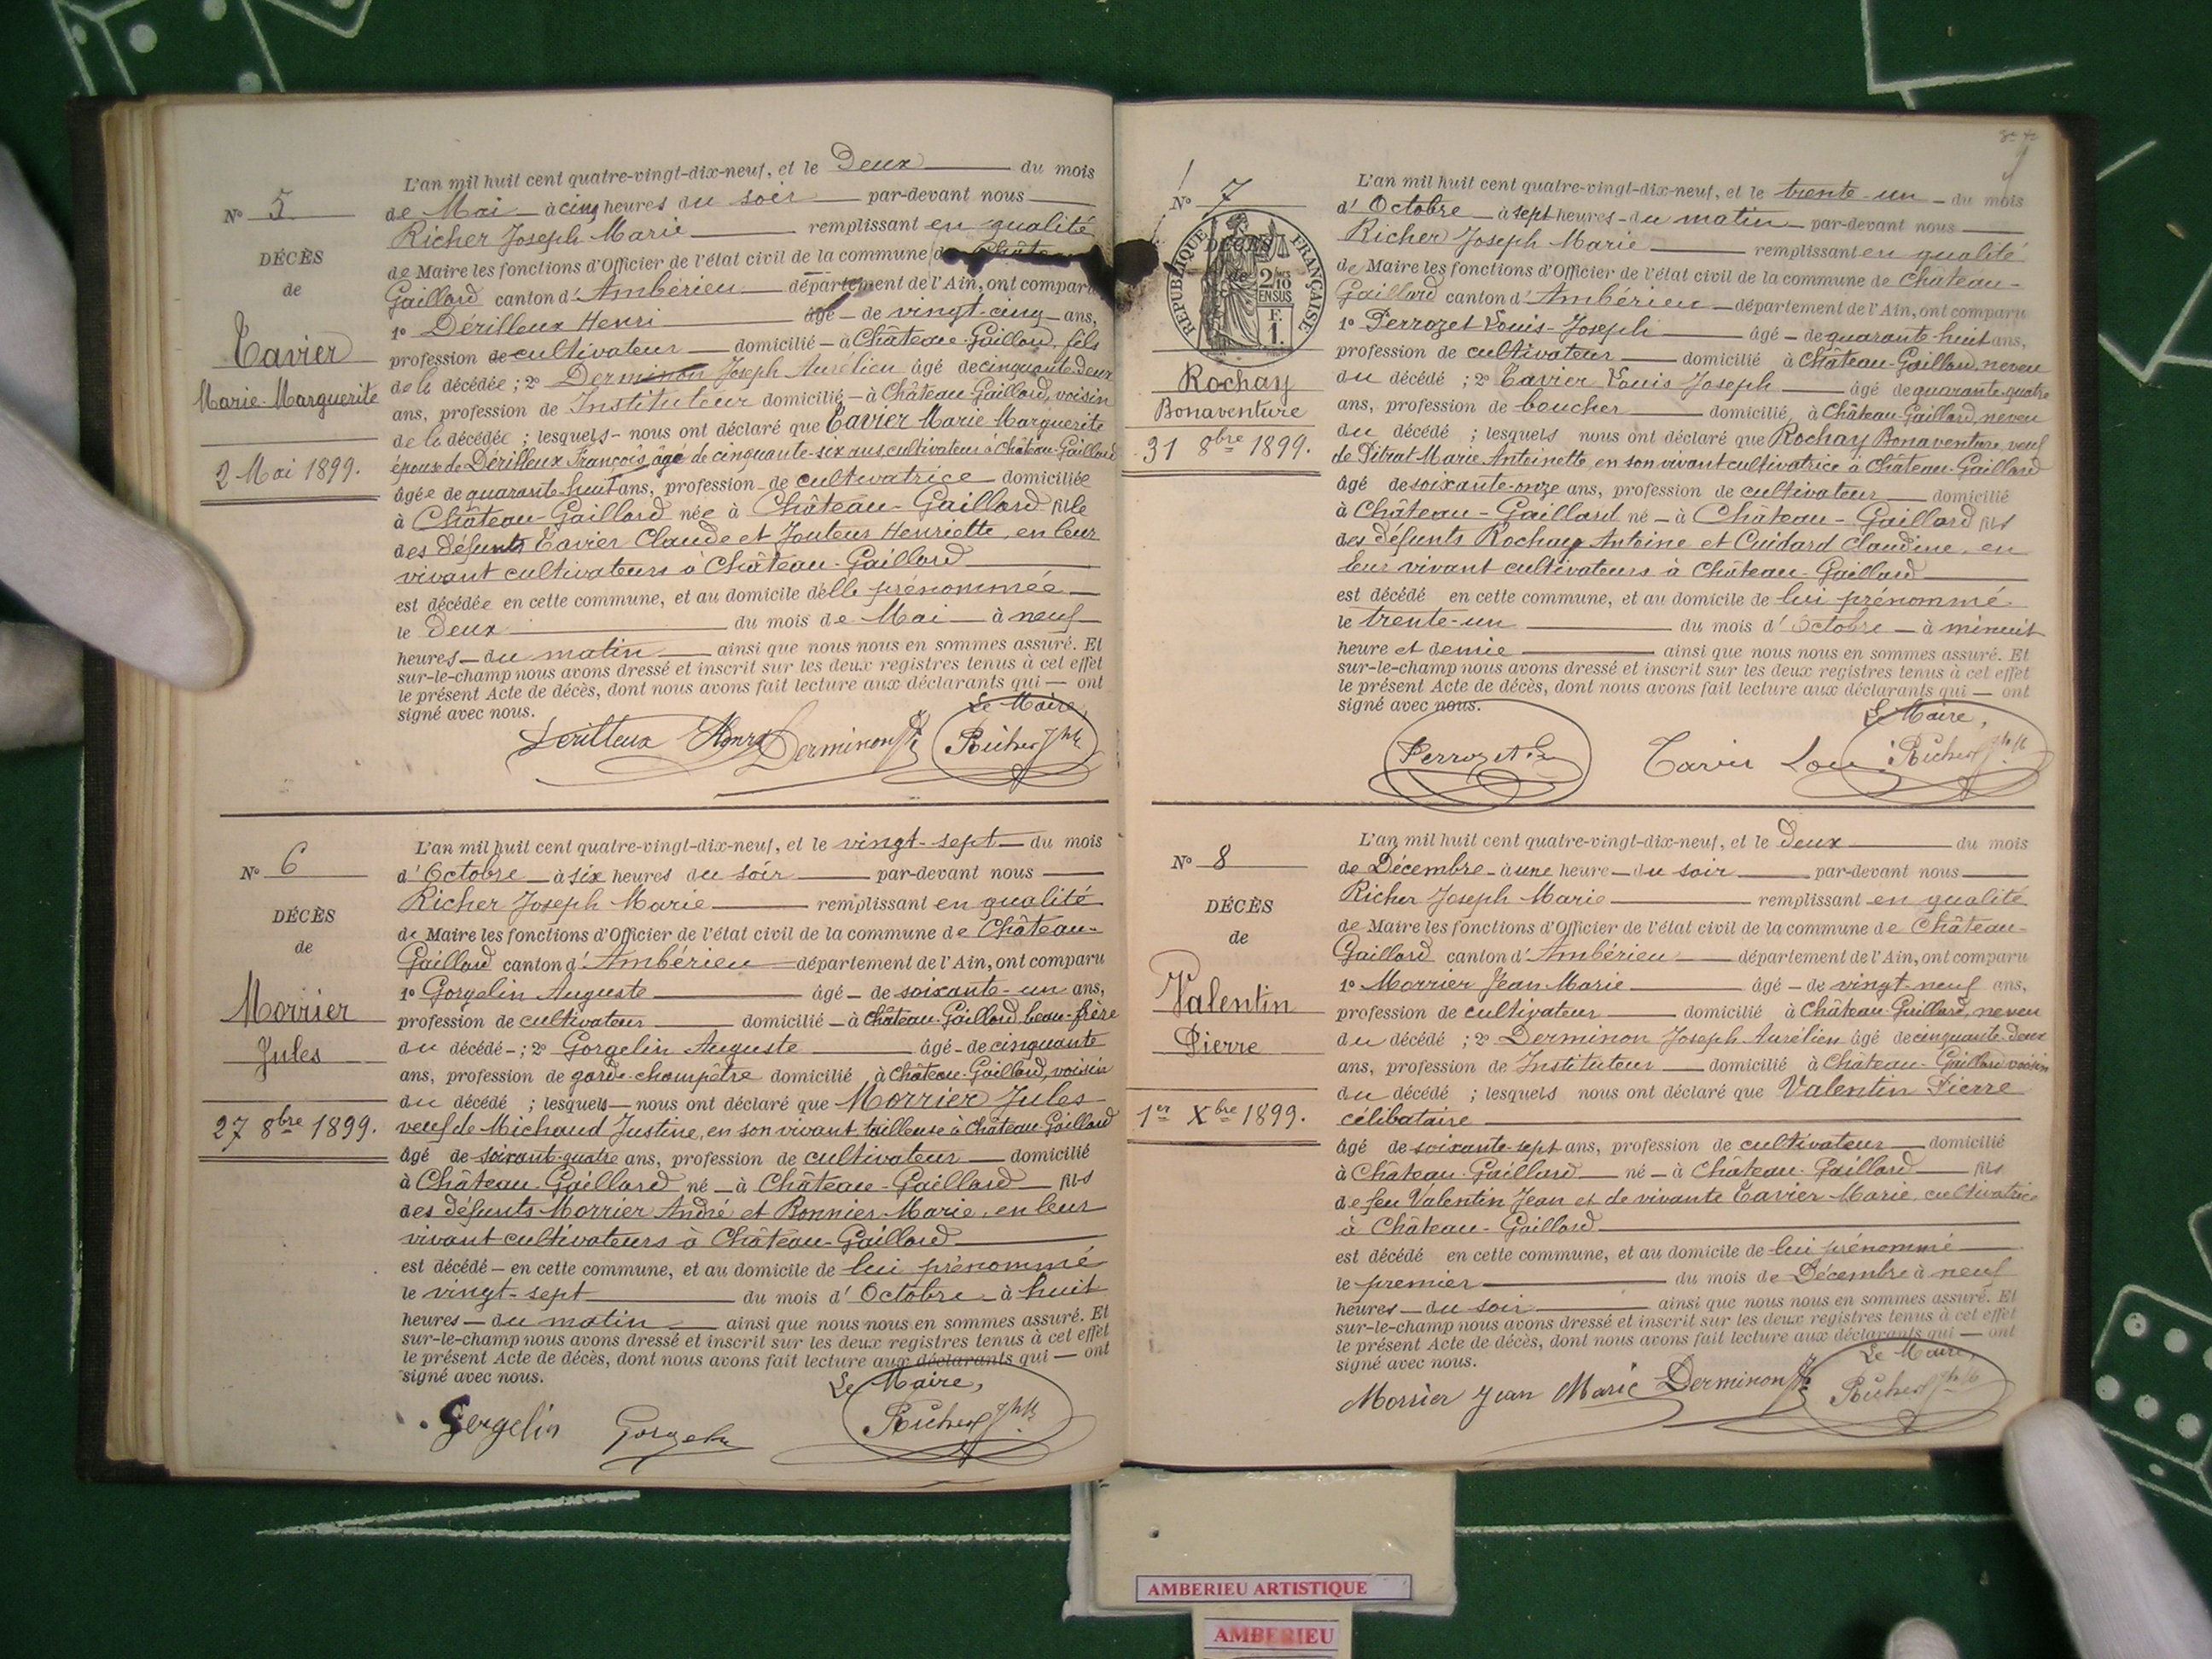 N° 5
DÉCÈS
de
Tavier
Marie-Marguerite
2 Mai 1899.
L'an mil huit cent quatre-vingt-dix-neuf, et le Deux du mois
de Mai à cinq heures du soir par-devant nous
Richer Joseph Marie remplissant en qualité
de Maire les fonctions d'Officier de l'état civil de la commune de Châte
Gaillard canton d'Ambérieu département de l'Ain, ont comparu
1° Dérilleux Henri âgé de vingt-cinq ans,
profession de cultivateur domicilié à Château-Gaillard, fils
de la décédée ; 2° Derminon Joseph Aurélien âgé de cinquante-deux
ans, profession de Instituteur domicilié à Château-Gaillard, voisin
de la décédée ; lesquels nous ont déclaré que Tavier Marie-Marguerite
épouse de Dérilleux François âgé de cinquante-six ans cultivateur à Château-Gaillard
âgée de quarante-huit ans, profession de cultivatrice domiciliée
à Château-Gaillard née à Château-Gaillard fille
des défunts Tavier Claude et Jouteur Henriette, en leur
vivant cultivateurs à Château-Gaillard
est décédée en cette commune, et au domicile d'elle prénommée
le Deux du mois de Mai à neuf
heures du matin ainsi que nous nous en sommes assuré. Et
sur-le-champ nous avons dressé et inscrit sur les deux registres tenus à cet effet
le présent Acte de décès, dont nous avons fait lecture aux déclarants qui ont
signé avec nous.
Le Maire,
Derilleux Henri Derminon Richer Jph
N° 6
DÉCÈS
de
Morrier
Jules
27 8bre 1899.
L'an mil huit cent quatre-vingt-dix-neuf, et le vingt-sept du mois
d'Octobre à six heures du soir par-devant nous
Richer Joseph Marie remplissant en qualité
de Maire les fonctions d'Officier de l'état civil de la commune de Château-
Gaillard canton d'Ambérieu département de l'Ain, ont comparu
1° Gorgelin Auguste âgé de soixante-un ans,
profession de cultivateur domicilié à Château-Gaillard, beau-frère
du décédé ; 2° Gorgelin Auguste âgé de cinquante
ans, profession de garde-champêtre domicilié à Château-Gaillard, voisin
du décédé ; lesquels nous ont déclaré que Morrier Jules
veuf de Michaud Justine, en son vivant tailleuse à Château-Gaillard
âgé de soixante-quatre ans, profession de cultivateur domicilié
à Château-Gaillard né à Château-Gaillard fils
des défunts Morrier André et Bonnier Marie, en leur
vivant cultivateurs à Château-Gaillard
est décédé en cette commune, et au domicile de lui prénommé
le vingt-sept du mois d'Octobre à huit
heures du matin ainsi que nous nous en sommes assuré. Et
sur-le-champ nous avons dressé et inscrit sur les deux registres tenus à cet effet
le présent Acte de décès, dont nous avons fait lecture aux déclarants qui ont
signé avec nous.
Le Maire,
Gorgelin Gorgelin Richer Jph
N° 7
RÉPUBLIQUE FRANÇAISE
DÉCÈS
de
2/10 EN SUS
F. 1.
Rochay
Bonaventure
31 8bre 1899.
L'an mil huit cent quatre-vingt-dix-neuf, et le trente-un du mois
d'Octobre à sept heures du matin par-devant nous
Richer Joseph Marie remplissant en qualité
de Maire les fonctions d'Officier de l'état civil de la commune de Château-
Gaillard canton d'Ambérieu département de l'Ain, ont comparu
1° Perrozet Louis-Joseph âgé de quarante-huit ans,
profession de cultivateur domicilié à Château-Gaillard, neveu
du décédé ; 2° Tavier Louis Joseph âgé de quarante-quatre
ans, profession de boucher domicilié à Château-Gaillard, neveu
du décédé ; lesquels nous ont déclaré que Rochay Bonaventure, veuf
de Pitrat Marie Antoinette, en son vivant cultivatrice à Château-Gaillard
âgé de soixante-onze ans, profession de cultivateur domicilié
à Château-Gaillard né à Château-Gaillard fils
des défunts Rochay Antoine et Cuidard Claudine, en
leur vivant cultivateurs à Château-Gaillard
est décédé en cette commune, et au domicile de lui prénommé
le trente-un du mois d'Octobre à minuit
heure et demie ainsi que nous nous en sommes assuré. Et
sur-le-champ nous avons dressé et inscrit sur les deux registres tenus à cet effet
le présent Acte de décès, dont nous avons fait lecture aux déclarants qui ont
signé avec nous.
Le Maire,
Perrozet Tavier Loui Richer Jph
N° 8
DÉCÈS
de
Valentin
Pierre
1er Xbre 1899.
L'an mil huit cent quatre-vingt-dix-neuf, et le Deux du mois
de Décembre à une heure du soir par-devant nous
Richer Joseph Marie remplissant en qualité
de Maire les fonctions d'Officier de l'état civil de la commune de Château-
Gaillard canton d'Ambérieu département de l'Ain, ont comparu
1° Morrier Jean Marie âgé de vingt-neuf ans,
profession de cultivateur domicilié à Château-Gaillard, neveu
du décédé ; 2° Derminon Joseph Aurélien âgé de cinquante-deux
ans, profession de Instituteur domicilié à Château-Gaillard voisin
du décédé ; lesquels nous ont déclaré que Valentin Pierre
célibataire
âgé de soixante-sept ans, profession de cultivateur domicilié
à Château-Gaillard né à Château-Gaillard fils
de feu Valentin Jean et de vivante Tavier Marie, cultivatrice
à Château-Gaillard
est décédé en cette commune, et au domicile de lui prénommé
le premier du mois de Décembre à neuf
heures du soir ainsi que nous nous en sommes assuré. Et
sur-le-champ nous avons dressé et inscrit sur les deux registres tenus à cet effet
le présent Acte de décès, dont nous avons fait lecture aux déclarants qui ont
signé avec nous.
Le Maire,
Morrier Jean Marie Derminon Richer Jph
AMBERIEU ARTISTIQUE
AMBERIEU